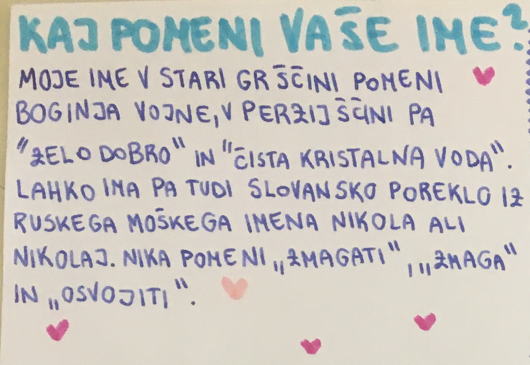 KAJ POMENI VAŠE IME?
MOJE IME V STARI GRŠČINI POMENI
BOGINJA VOJNE, V PERZIJŠČINI PA
"ZELO DOBRO" IN "ČISTA KRISTALNA VODA".
LAHKO IMA PA TUDI SLOVANSKO POREKLO IZ
RUSKEGA MOŠKEGA IMENA NIKOLA ALI
NIKOLAJ. NIKA POMENI „ZMAGATI", „ZMAGA"
IN „OSVOJITI".